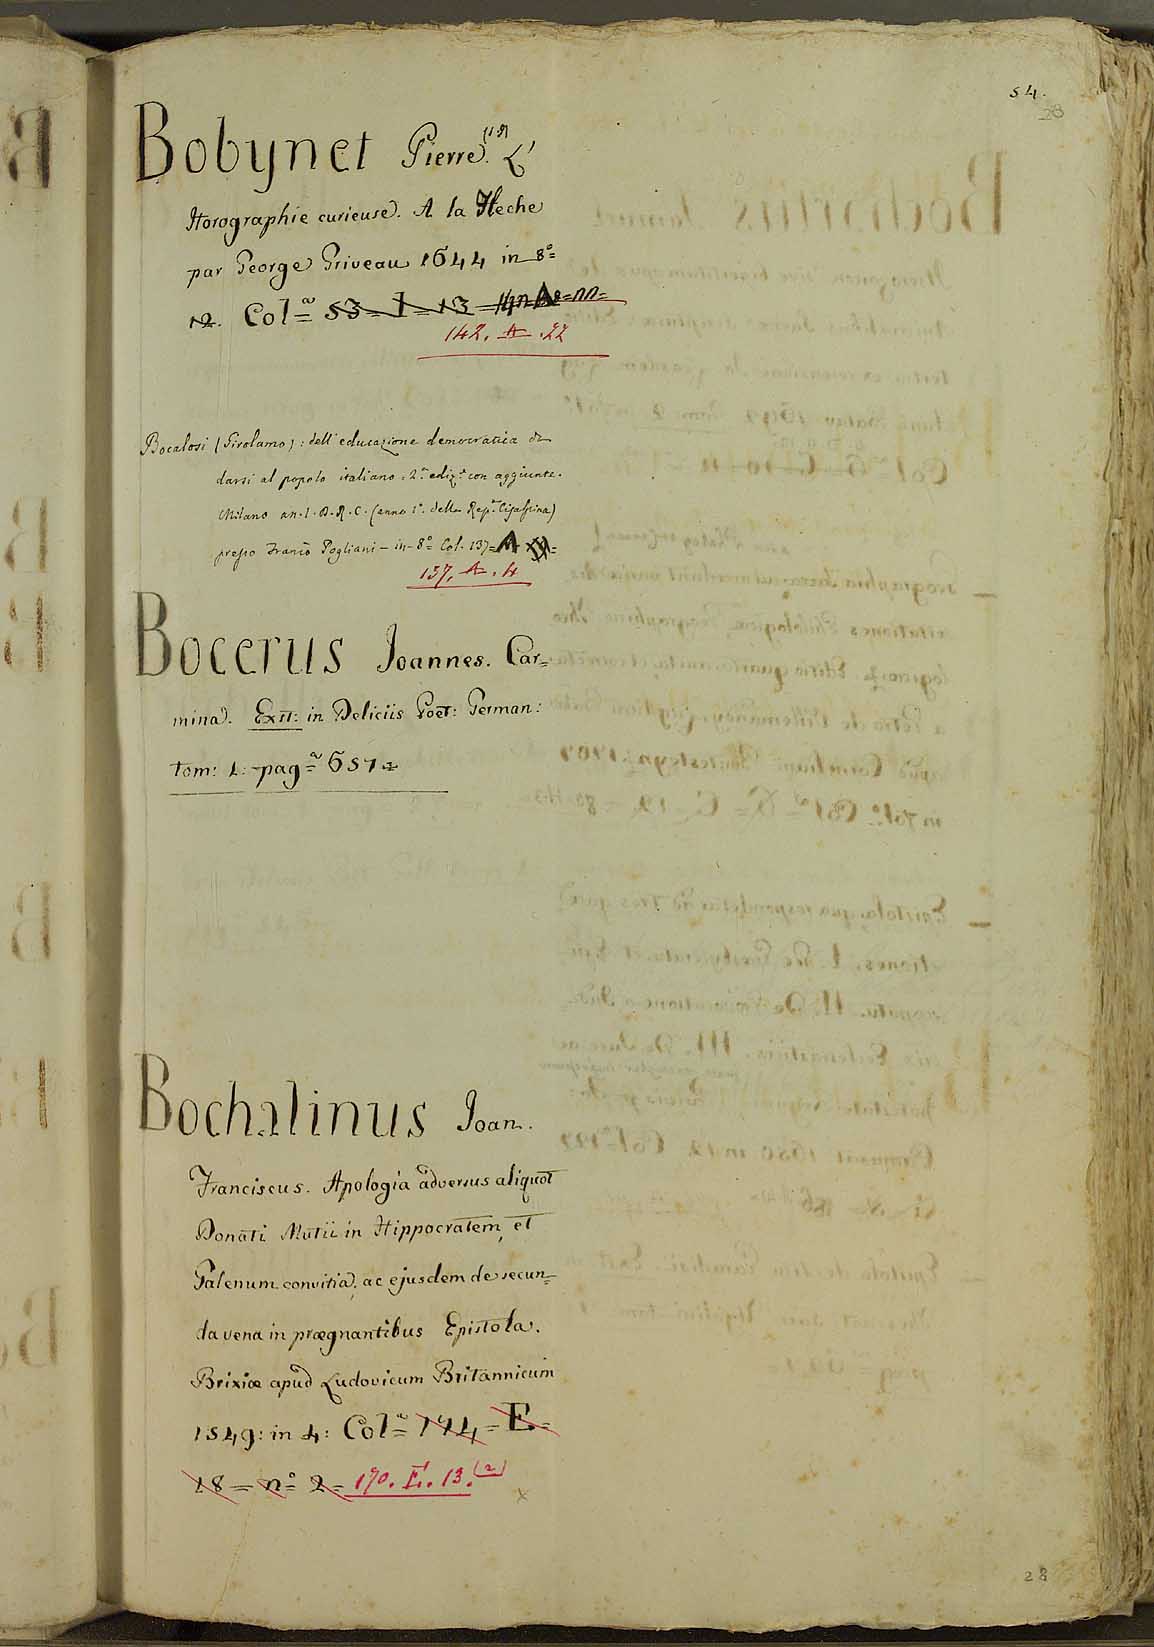 54.
28
Bobynet Pierre. L'
Horographie curieuse. A la Fleche
par George Griveau 1644 in 8°=
12. Col.ª= 53= I= 13=
142. A .22
Bocalosi (Girolamo): dell'educazione democratica da
darsi al popolo italiano: 2.ª ediz.e con aggiunte.
Milano an. I. D. R. C. (anno 1.° della Rep.ª Cisalpina)
presso Franc.o Pogliani - in-8°= Col. 137=A
137. A . 4
Bocerus Joannes. Car=
mina. Exit: in Deliciis Poet: German:
tom: 1: pag.ª= 651=
Bochalinus Joan.
Franciscus. Apologia adversus aliquot
Donati Mutii in Hippocratem, et
Galenum convitia, ac ejusdem de secun=
da vena in prægnantibus Epistola.
Brixiæ apud Ludovicum Britannicum
1549: in 4: Col.ª= 174= E=
18= n.°= 2= 170. E. 13.(2)
x
28